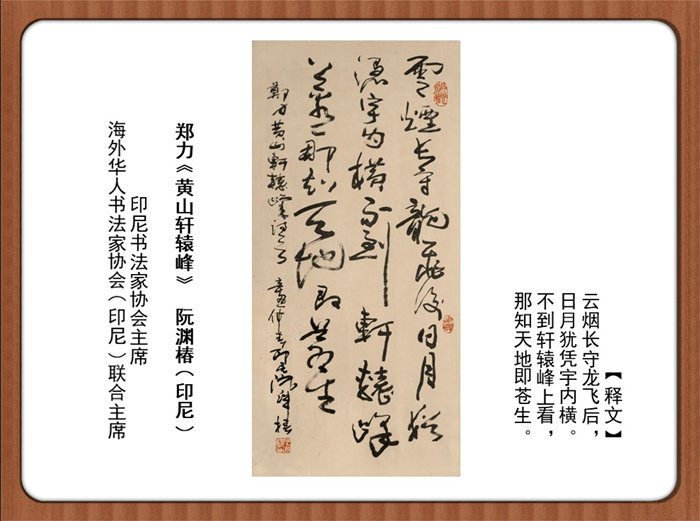 【释文】
云烟长守龙飞后，
日月犹凭宇内横。
不到轩辕峰上看，
那知天地即苍生。
雲煙長守龍飛後日月猶
憑宇内橫不到軒轅峰
上看那知天地即蒼生
鄭力黄山軒轅峰
郑力《黄山轩辕峰》 阮渊椿（印尼）
印尼书法家协会主席
海外华人书法家协会（印尼）联合主席